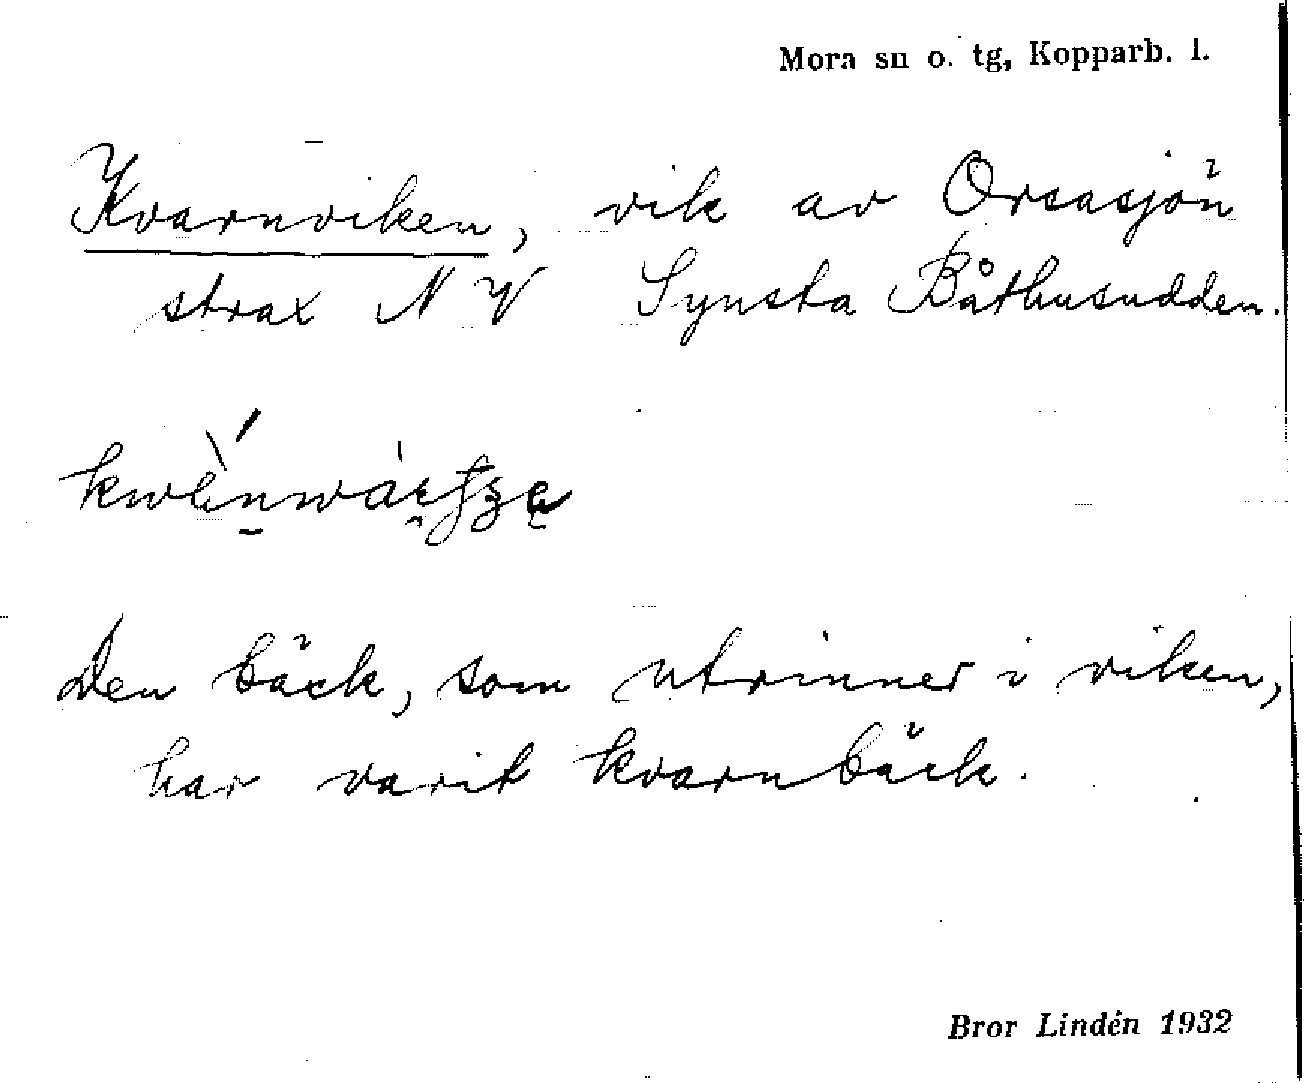 Mora sn o. tg, Kopparb. l.
Kvarnviken, vik av Orsasjön
strax NV Synsta Båthusudden.
Den bäck, som utrinner i viken,
har varit kvarnbäck.
Bror Lindén 1932